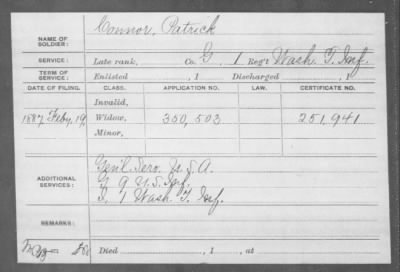 NAME OF SOLDIER: Connor, Patrick
SERVICE: Late rank, Co. G, 1 Reg't Wash. T. Inf.
TERM OF SERVICE: Enlisted , 1 Discharged , 1
DATE OF FILING. CLASS. APPLICATION NO. LAW. CERTIFICATE NO.
Invalid,
1887 Feby. 19 Widow, 350,503 251,941
Minor,
ADDITIONAL SERVICES: Gen'l Serv. U.S.A.
G 9 U.S. Inf.
1 Wash. T. Inf.
REMARKS:
Died , 1 , at